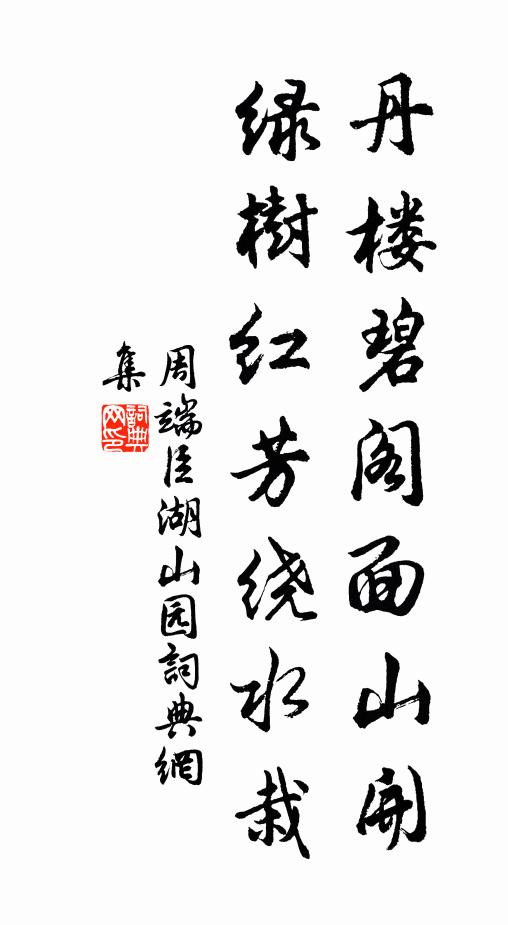 丹楼碧阁面山開
绿樹红芳绕水栽
周端臣湖山园詞典網
集
詞典网印